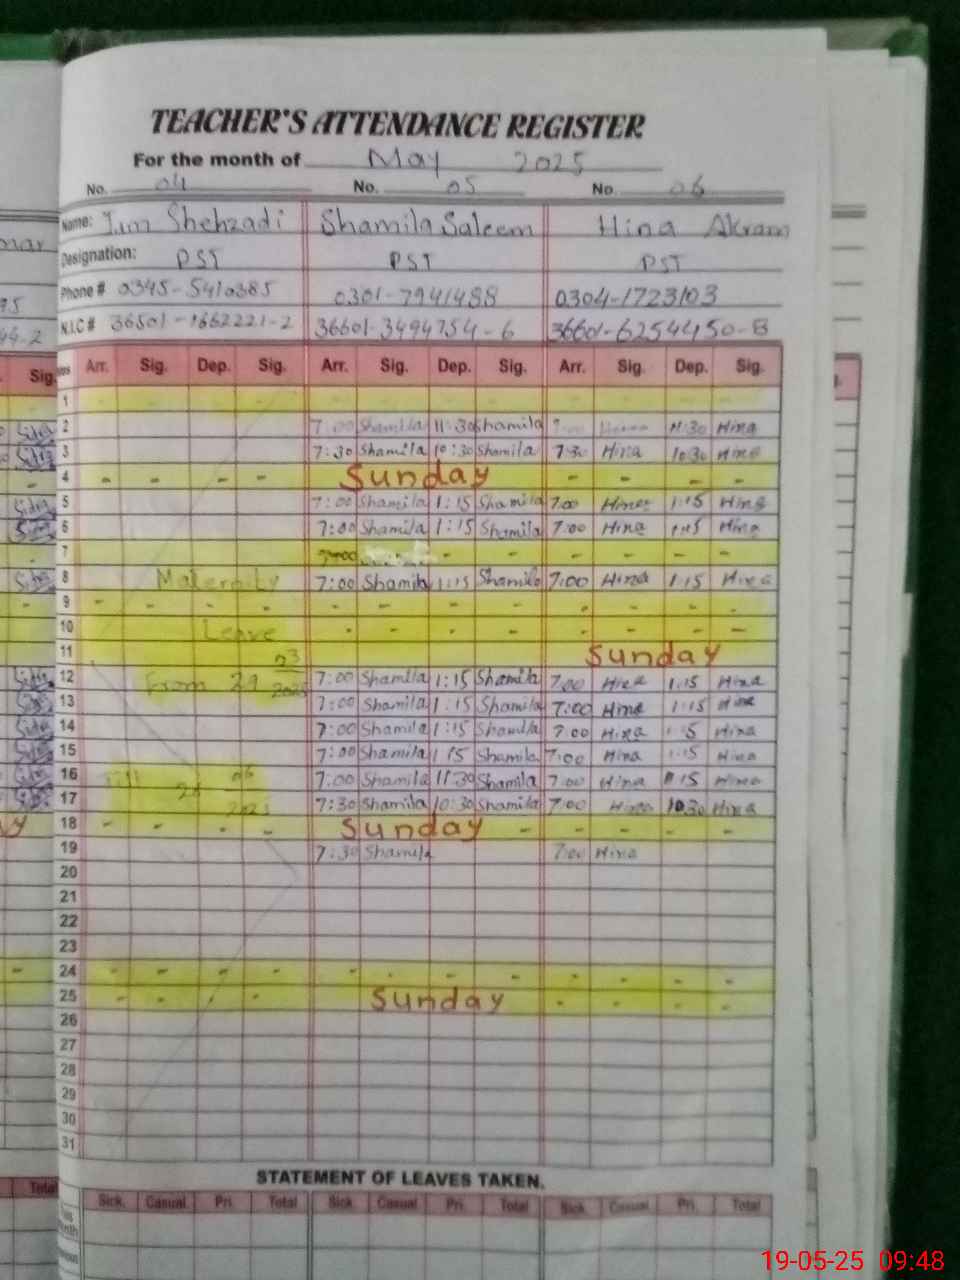 TEACHER'S ATTENDANCE REGISTER
For the month of May 2025
No. 04 No. 05 No. 06
Name: Shehzadi Shamila Saleem Hina Akram
Designation: PST PST PST
Phone # 0345-5410385 0301-7941488 0304-1723103
N.I.C # 36501-1662221-2 36601-3494754-6 36601-6254450-8
Sig. Arr. Sig. Dep. Sig. Arr. Sig. Dep. Sig. Arr. Sig. Dep. Sig.
1
2 7:00 Shamila 11:30 Shamila 11:30 Hina
3 7:30 Shamila 10:30 Shamila 7:30 Hina 10:30 Hina
4 - - - - Sunday - - - -
5 7:00 Shamila 1:15 Shamila 7:00 Hina 1:15 Hina
6 7:00 Shamila 1:15 Shamila 7:00 Hina 1:15 Hina
7 - - - - - -
8 Maternity 7:00 Shamila 1:15 Shamila 7:00 Hina 1:15 Hina
9 - - - - - - - - - - - -
10 Leave - - - - - - - -
11 Sunday
12 From 29 03 2025 7:00 Shamila 1:15 Shamila 7:00 Hina 1:15 Hina
13 7:00 Shamila 1:15 Shamila 7:00 Hina 1:15 Hina
14 7:00 Shamila 1:15 Shamila 7:00 Hina 1:15 Hina
15 7:00 Shamila 1:15 Shamila 7:00 Hina 1:15 Hina
16 7:00 Shamila 11:30 Shamila 7:00 Hina Hina
17 7:30 Shamila 10:30 Shamila 7:00 Hina 10:30 Hina
18 - - - - Sunday - - - -
19 7:30 Shamila 7:00 Hina
20
21
22
23
24 - - - - - - - - - - - -
25 - - - - Sunday - - - -
26
27
28
29
30
31
STATEMENT OF LEAVES TAKEN.
Total Sick. Casual. Pri. Total Sick. Casual. Pri. Total Sick. Casual. Pri. Total
19-05-25 09:48